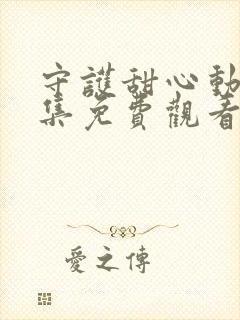 守護甜心動
集免費觀看
愛之傳